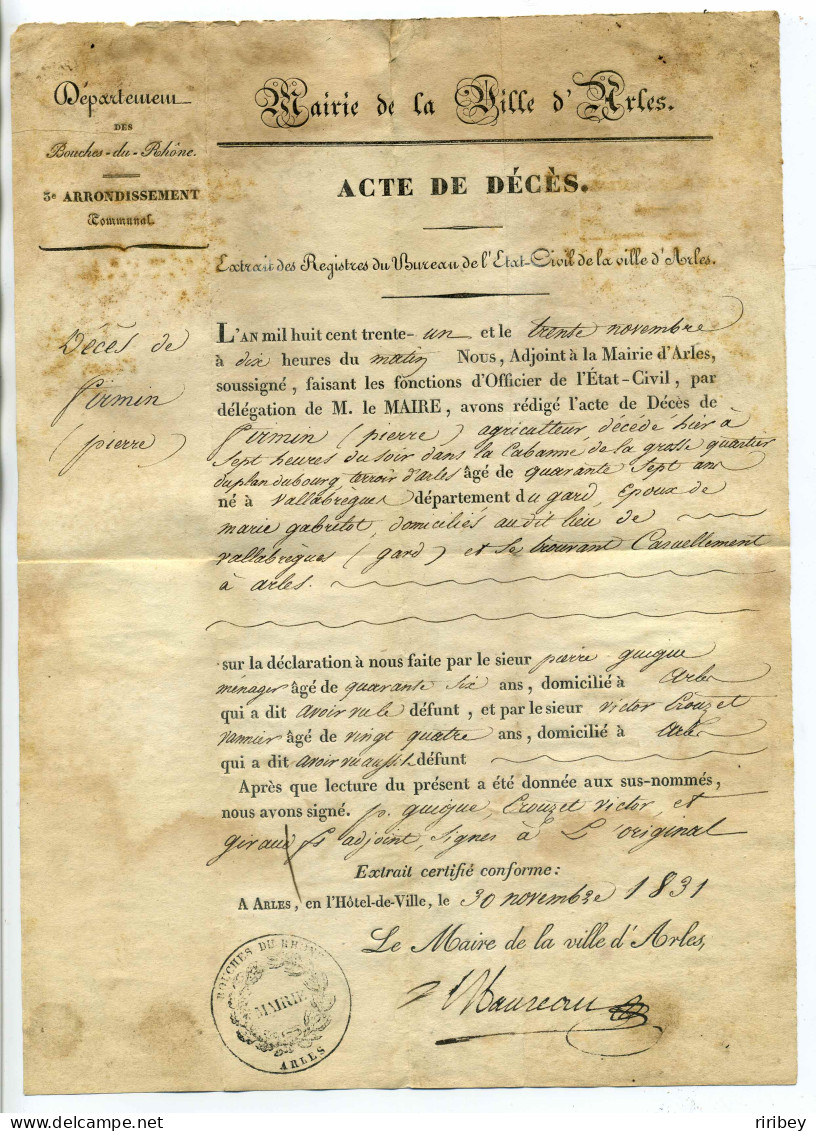 Département
DES
Bouches-du-Rhône.
3e ARRONDISSEMENT
Communal.
Mairie de la Ville d'Arles.
ACTE DE DÉCÈS.
Extrait des Registres du Bureau de l'Etat-Civil de la ville d'Arles.
Décès de
Firmin
(pierre)
L'AN mil huit cent trente-un et le trente novembre
à dix heures du matin Nous, Adjoint à la Mairie d'Arles,
soussigné, faisant les fonctions d'Officier de l'État-Civil, par
délégation de M. le MAIRE, avons rédigé l'acte de Décès de
Firmin (pierre) agriculteur, décédé hier à
Sept heures du soir dans la Cabanne de la grosse quartier
du plan dubourg, terroir d'arles âgé de quarante Sept ans
né à Vallabrègues département du gard, Epoux de
marie gabrelot, domiciliés au dit lieu de
vallabrègues (gard) et se trouvant Casuellement
à arles.
sur la déclaration à nous faite par le sieur pierre guigue
ménager âgé de quarante six ans, domicilié à Arles
qui a dit avoir vu le défunt, et par le sieur victor Crouzet
vannier âgé de vingt quatre ans, domicilié à Arles
qui a dit avoir vu aussi le défunt
Après que lecture du présent a été donnée aux sus-nommés,
nous avons signé. p. guigue, Crouzet victor, et
giraud adjoint, signés à L'original
Extrait certifié conforme:
A ARLES, en l'Hôtel-de-Ville, le 30 novembre 1831
Le Maire de la ville d'Arles,
BOUCHES DU RHÔNE
MAIRIE
ARLES
riribey